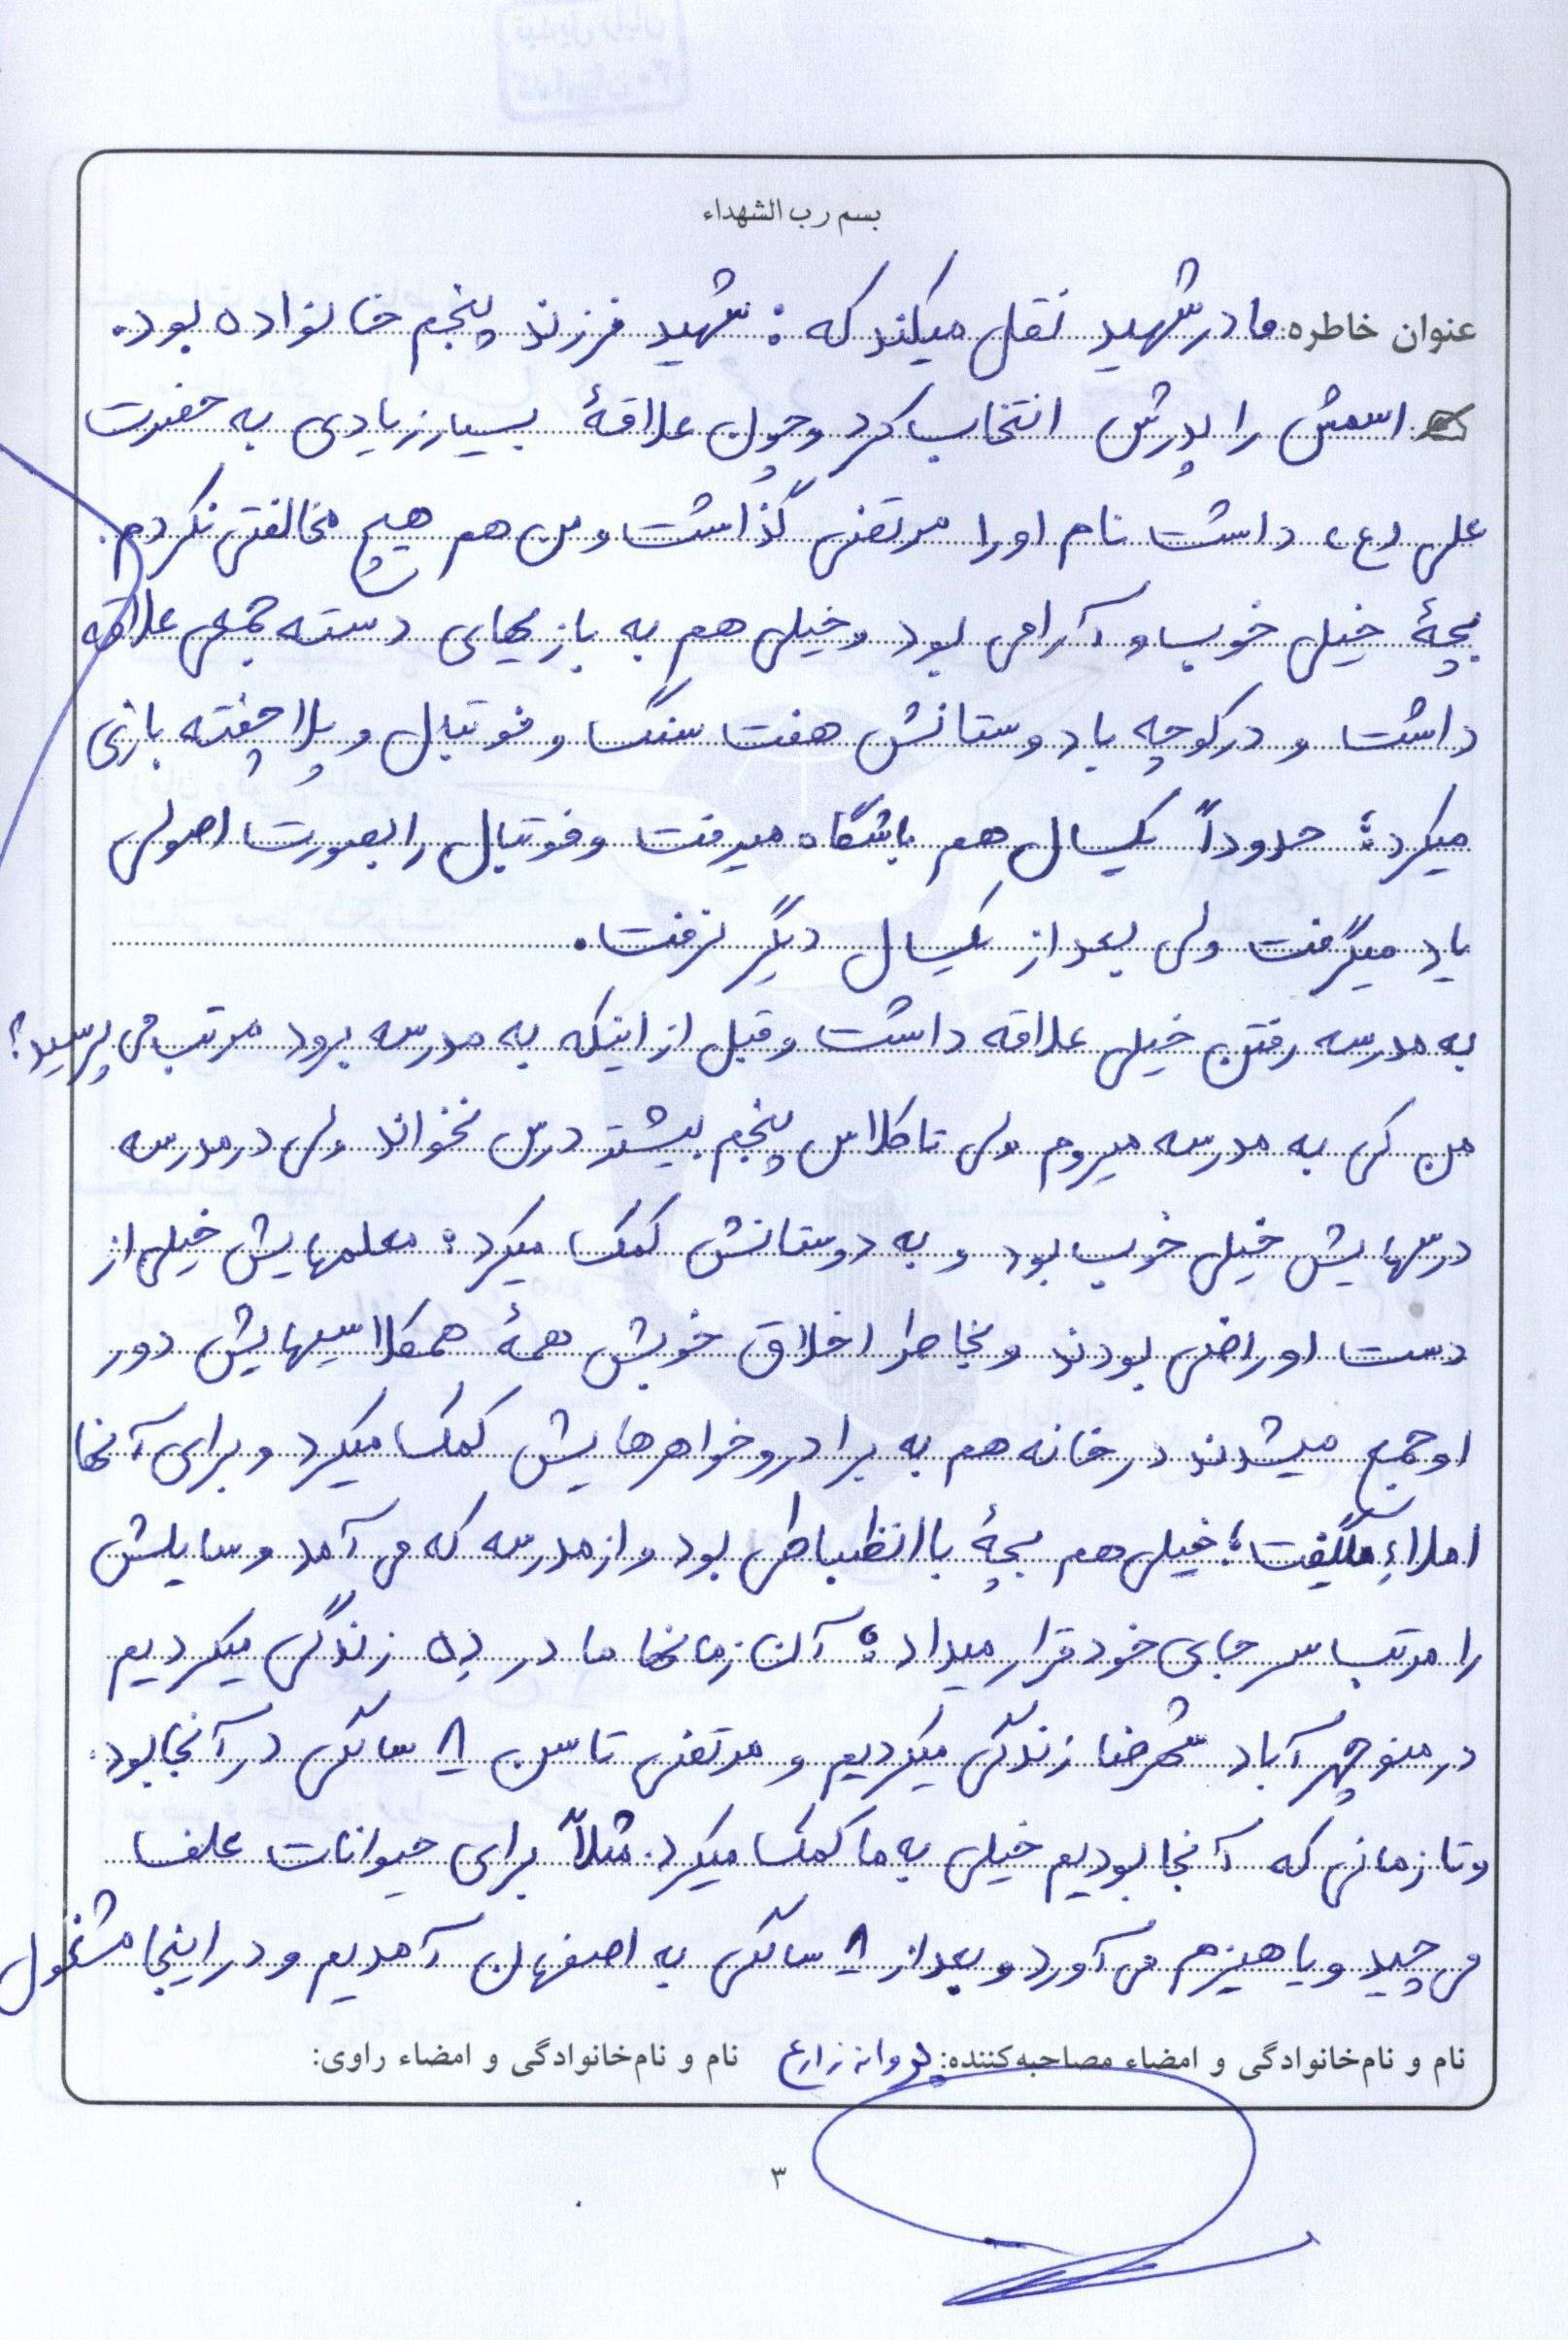 بسم رب الشهداء
عنوان خاطره: مادر شهید نقل میکند که : شهید فرزند پنجم خانواده بود.
اسمش را پدرش انتخاب کرد و چون علاقهٔ بسیار زیادی به حضرت
علی (ع) داشت نام او را مرتضی گذاشت و من هم هیچ مخالفتی نکردم.
بچهٔ خیلی خوب و آرامی بود و خیلی هم به بازیهای دسته جمعی علاقه
داشت و در کوچه با دوستانش هفت سنگ و فوتبال و پلا چفته بازی
میکرد؛ حدوداً یکسال هم باشگاه میرفت و فوتبال را بصورت اصولی
یاد میگرفت ولی بعد از یکسال دیگر نرفت.
به مدرسه رفتن خیلی علاقه داشت و قبل از اینکه به مدرسه برود مرتب می پرسید؟
من کی به مدرسه میروم ولی تا کلاس پنجم بیشتر درس نخواند ولی در مدرسه
درسهایش خیلی خوب بود و به دوستانش کمک میکرد؛ معلمهایش خیلی از
دست او راضی بودند و بخاطر اخلاق خوبش همهٔ همکلاسیهایش دور
او جمع میشدند در خانه هم به برادر و خواهرهایش کمک میکرد و برای آنها
املاءِ میگفت؛ خیلی هم بچهٔ باانظباطی بود و از مدرسه که می آمد وسایلش
را مرتب سر جای خود قرار میداد؛ آن زمانها ما در ده زندگی میکردیم
در منوچهرآباد شهرضا زندگی میکردیم و مرتضی تا سن ۸ سالگی در آنجا بود.
و تا زمانی که آنجا بودیم خیلی به ما کمک میکرد. مثلاً برای حیوانات علف
می چید و یا هیزم می آورد و بعد از ۸ سالگی به اصفهان آمدیم و در اینجا مشغول
نام و نام‌خانوادگی و امضاء مصاحبه‌کننده: پروانه زارع نام و نام‌خانوادگی و امضاء راوی:
۳